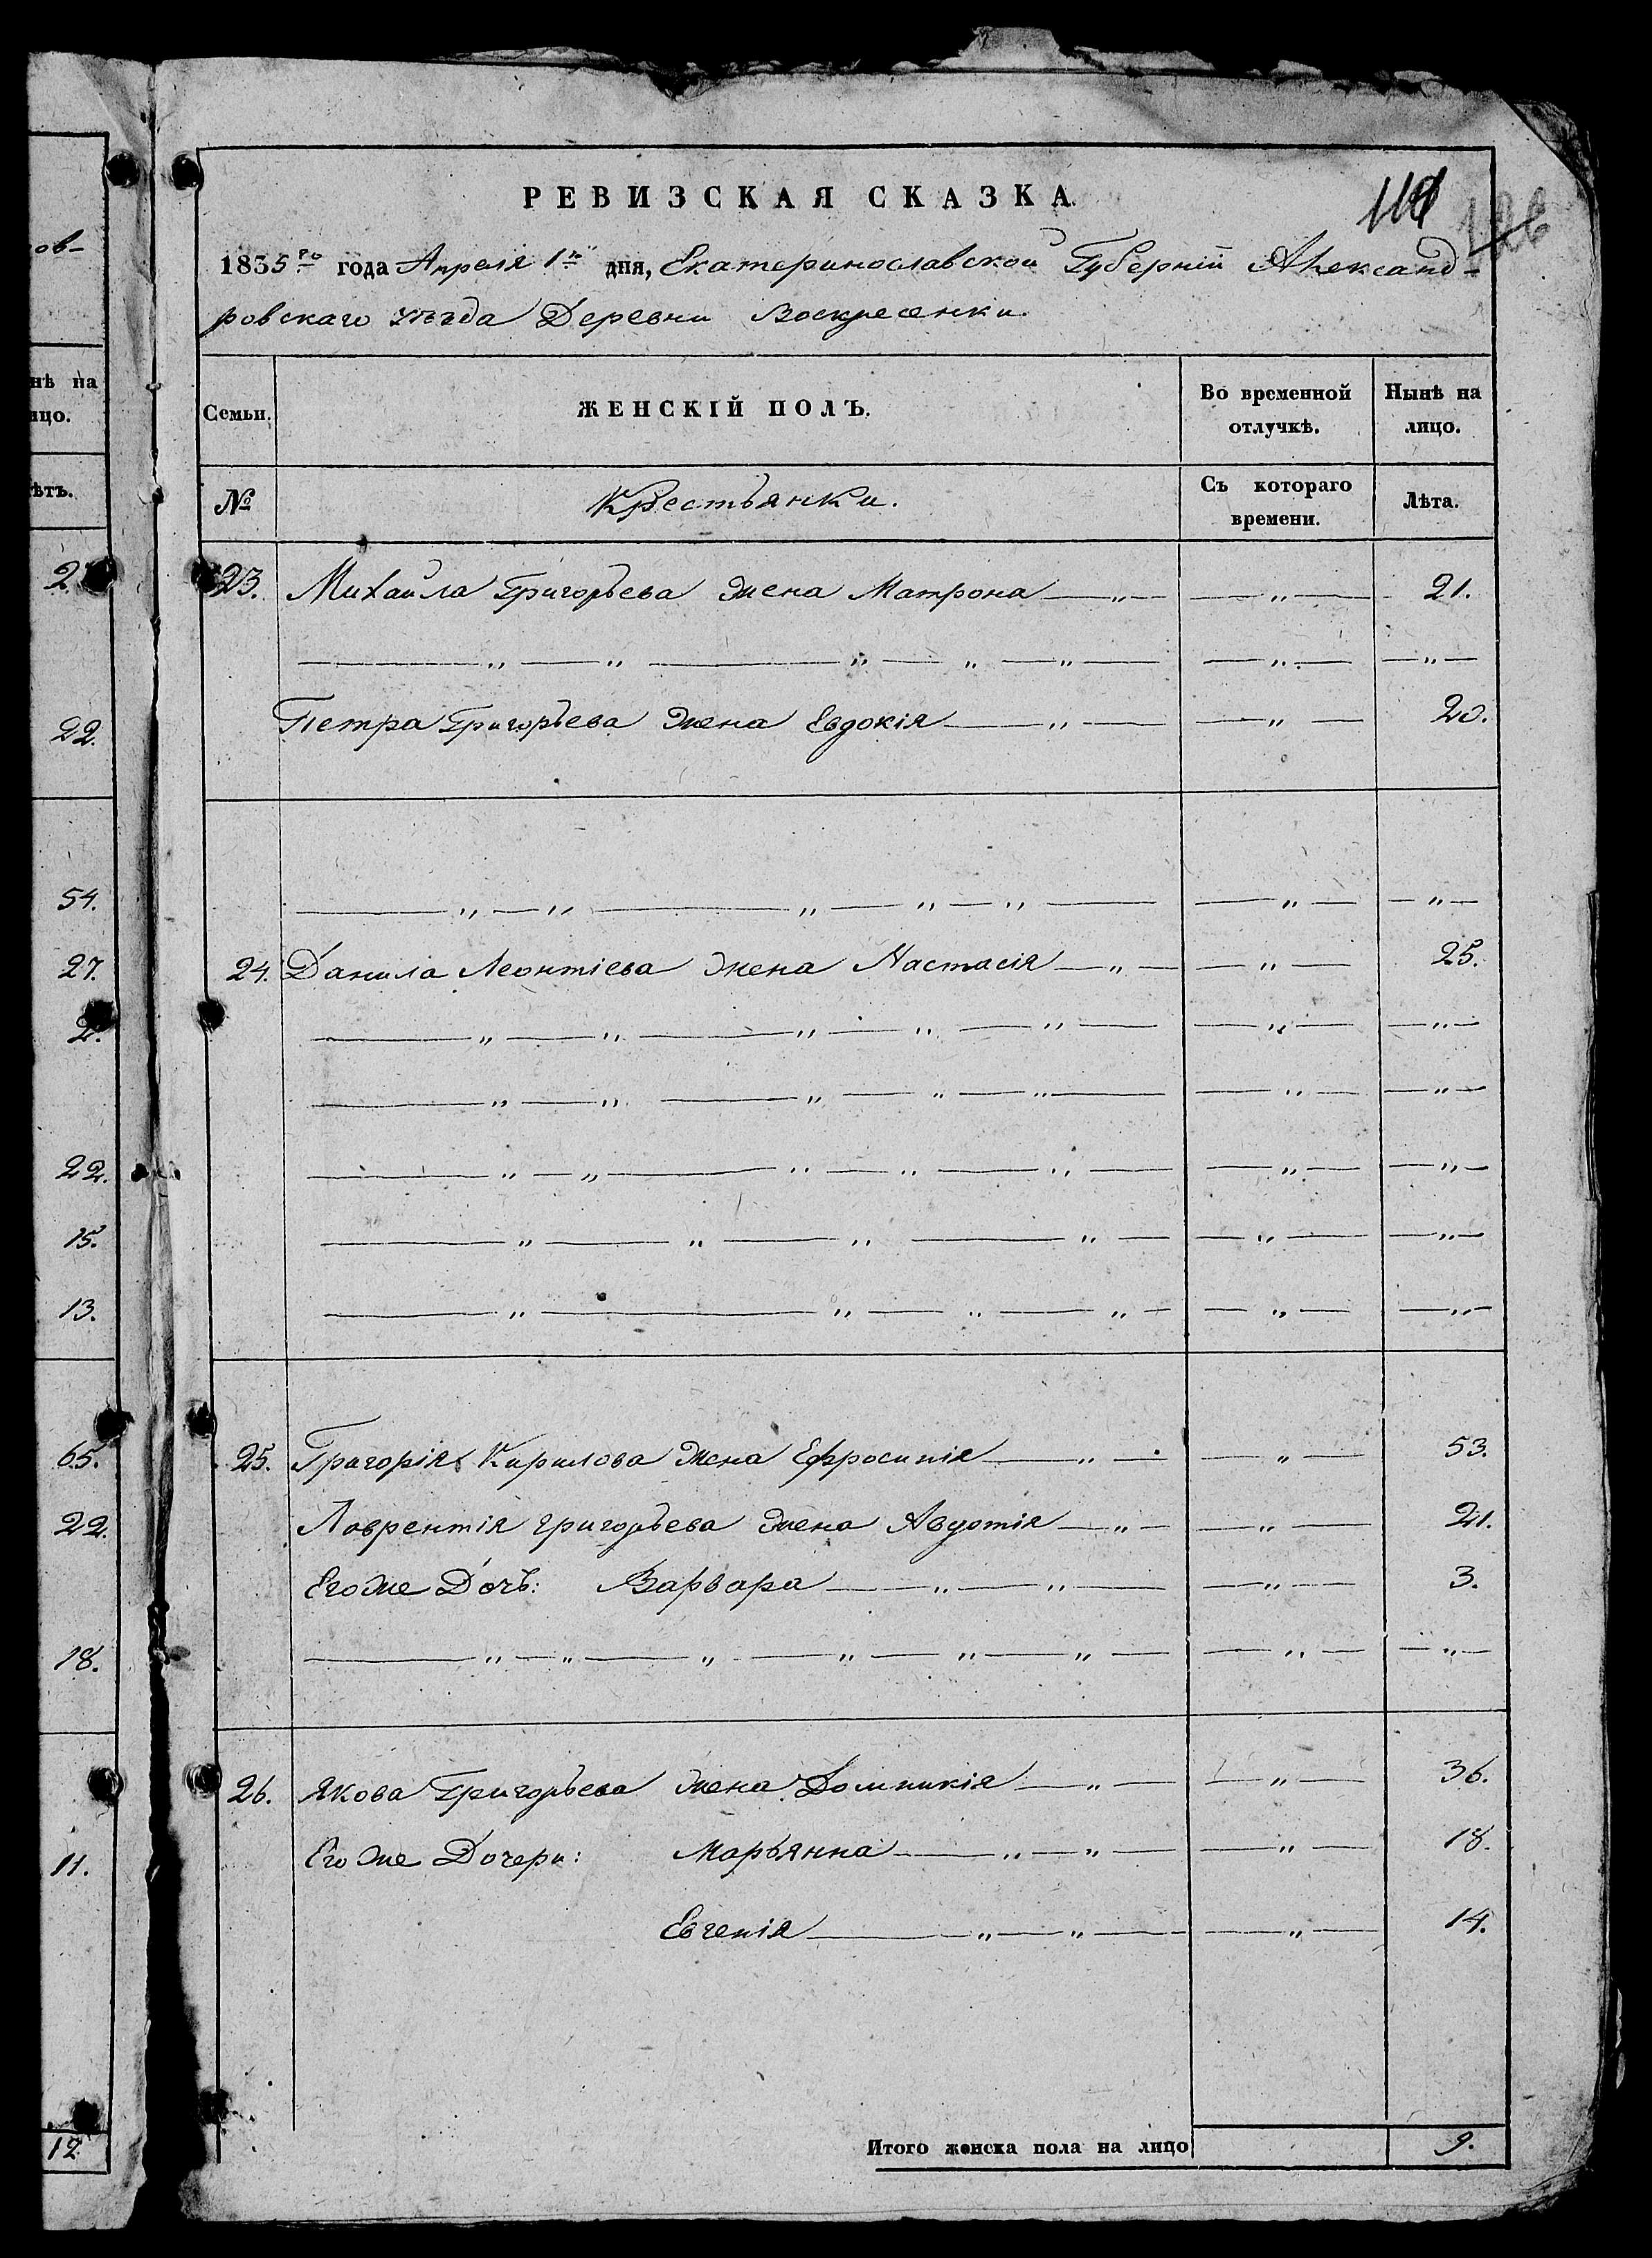 ов-
нѣ на
ицо.
ѣтъ.
2.
22.
54.
27.
2.
22.
15.
13.
65.
22.
18.
11.
12
РЕВИЗСКАЯ СКАЗКА
126
1835го года Апреля 1го дня, Екатеринославской Губернiи Александ-
ровскаго уѣзда Деревни Воскресенки.
Семьи. ЖЕНСКIЙ ПОЛЪ. Во временной отлучкѣ. Нынѣ на лицо.
№ Крестьянки. Съ котораго времени. Лѣта.
23. Михайла Григорьева жена Матрона —„— —„— 21.
—„—„—„—„—„— —„— —„—
Петра Григорьева жена Евдокiя —„— —„— 20.
—„—„—„—„—„— —„— —„—
24. Данила Леонтiева жена Настасiя —„— —„— 25.
—„—„—„—„—„— —„— —„—
—„—„—„—„—„— —„— —„—
—„—„—„—„—„— —„— —„—
—„—„—„—„— —„— —„—
—„—„—„—„— —„— —„—
25. Григорiя Кирилова жена Ефросинiя —„— —„— 53.
Лаврентiя Григорьева жена Авдотiя —„— —„— 21.
Его же Дочь: Варвара —„—„— —„— 3.
—„—„—„—„—„—„— —„— —„—
26. Якова Григорьева жена Домникiя —„— —„— 36.
Его же Дочери: Марьянна —„—„— —„— 18.
Евгенiя —„—„— —„— 14.
Итого женска пола на лицо 9.